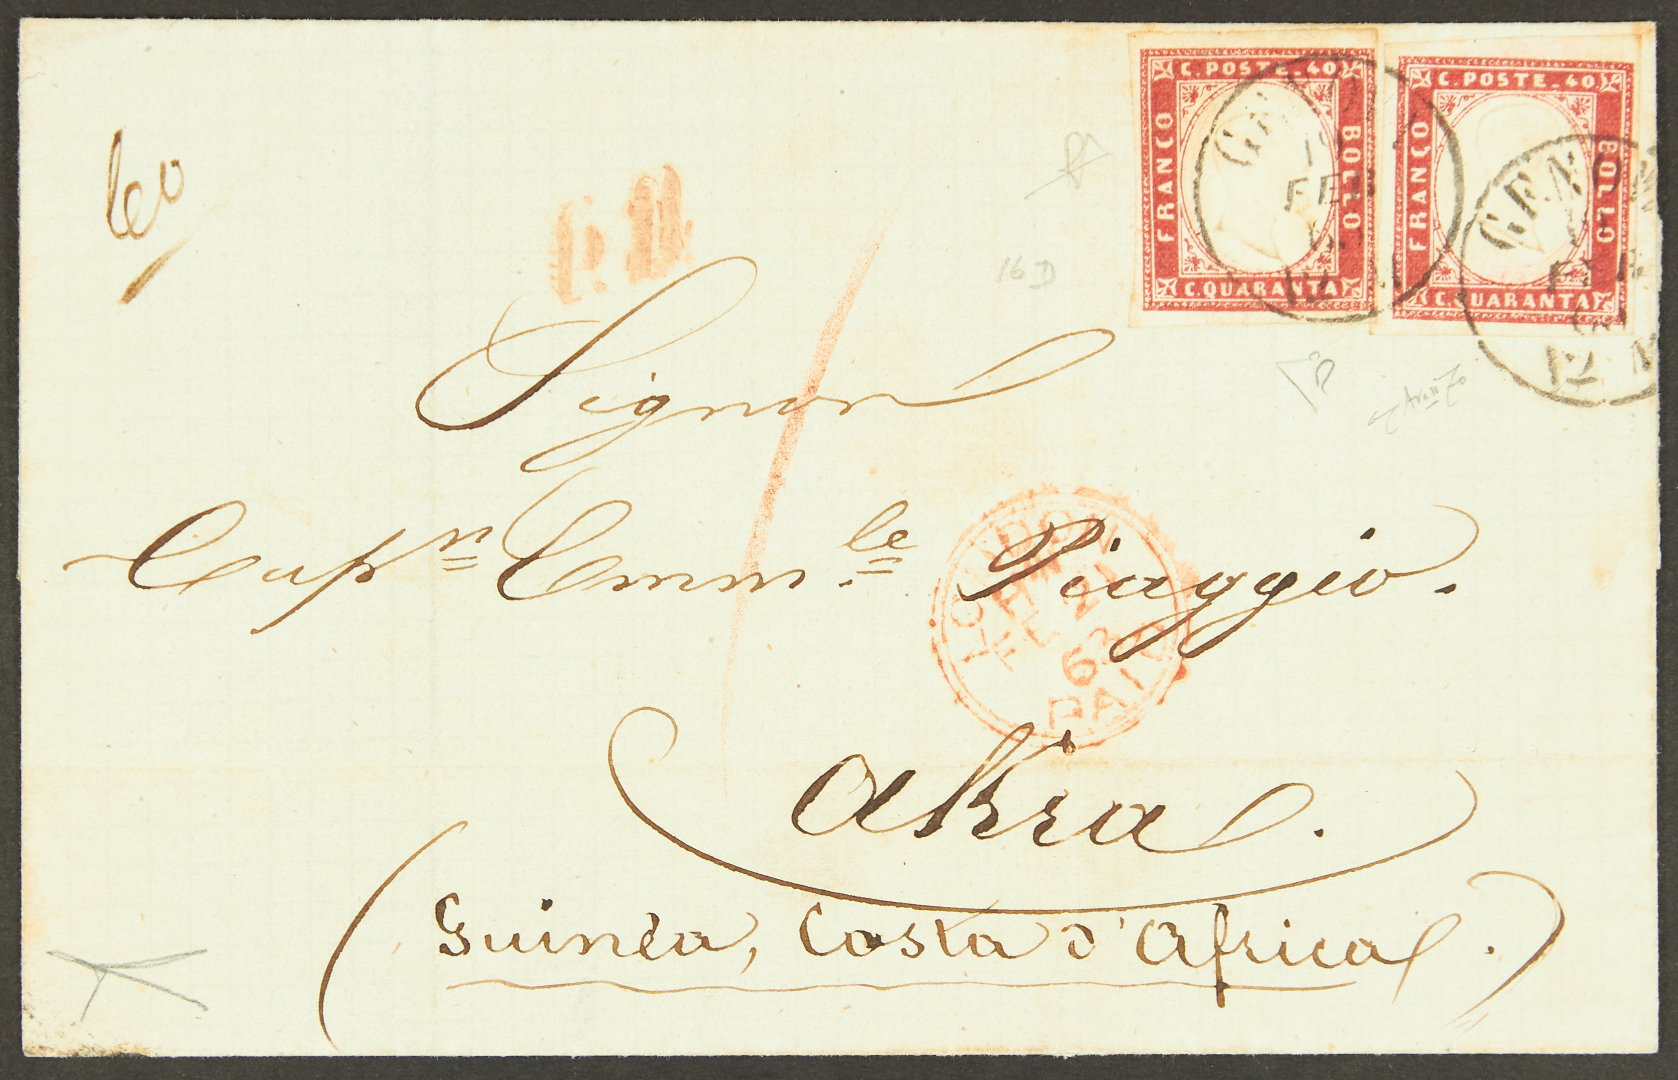 C. POSTE. 40
FRANCO
BOLLO
C. QUARANTA
C. POSTE. 40
FRANCO
BOLLO
C. QUARANTA
GENOVA
19
FEB
GENOVA
FEB
12 M
P.D.
16 D
Avanzo
Signor
Capⁿ Emmˡᵉ Piaggio.
LONDON
FE
62
PAID
Akra.
(Guinea, Costa d'Africa.)